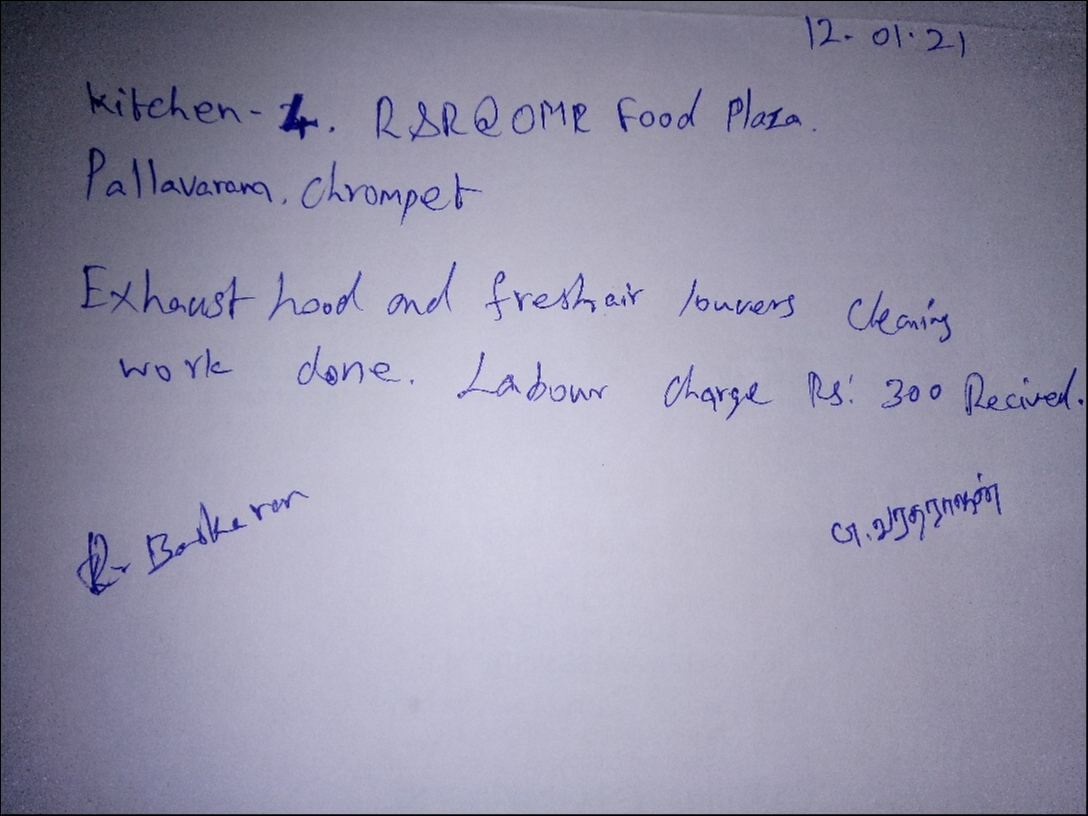 12.01.21
Kitchen-4. RSR@OMR Food Plaza.
Pallavaram, Chrompet
Exhaust hood and freshair louvers Cleaning
work done. Labour charge Rs: 300 Recived.
R. Baskaran
வரதராஜன்